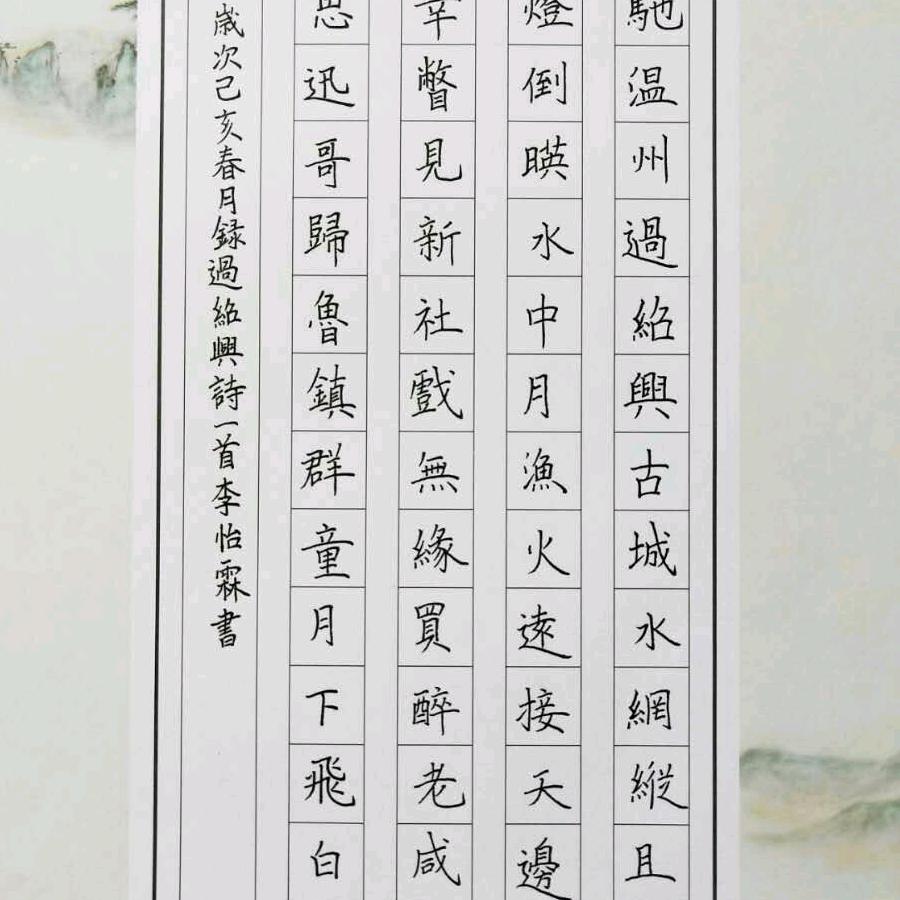 馳温州過紹興古城水網縱且
燈倒暎水中月漁火遠接天邊
幸瞥見新社戲無緣買醉老咸
思迅哥歸魯鎮群童月下飛白
歲次己亥春月録過紹興詩一首李怡霖書